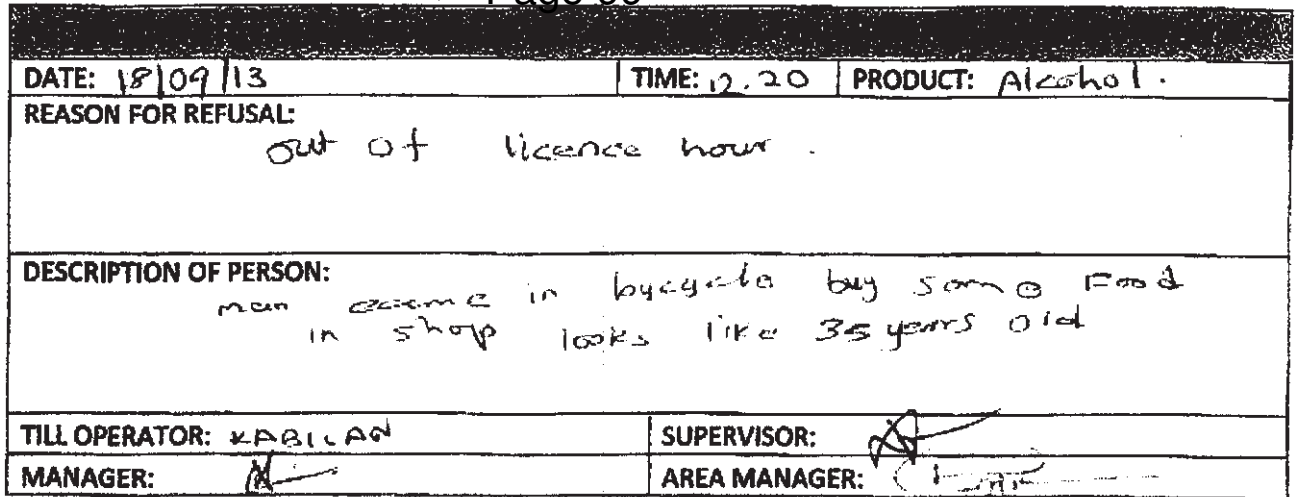 DATE: 18/09/13 TIME: 12.20 PRODUCT: Alcohol.
REASON FOR REFUSAL:
out of licence hour.
DESCRIPTION OF PERSON:
man came in bycycle buy some Food
in shop looks like 35 years old
TILL OPERATOR: KABILAN SUPERVISOR:
MANAGER: AREA MANAGER: